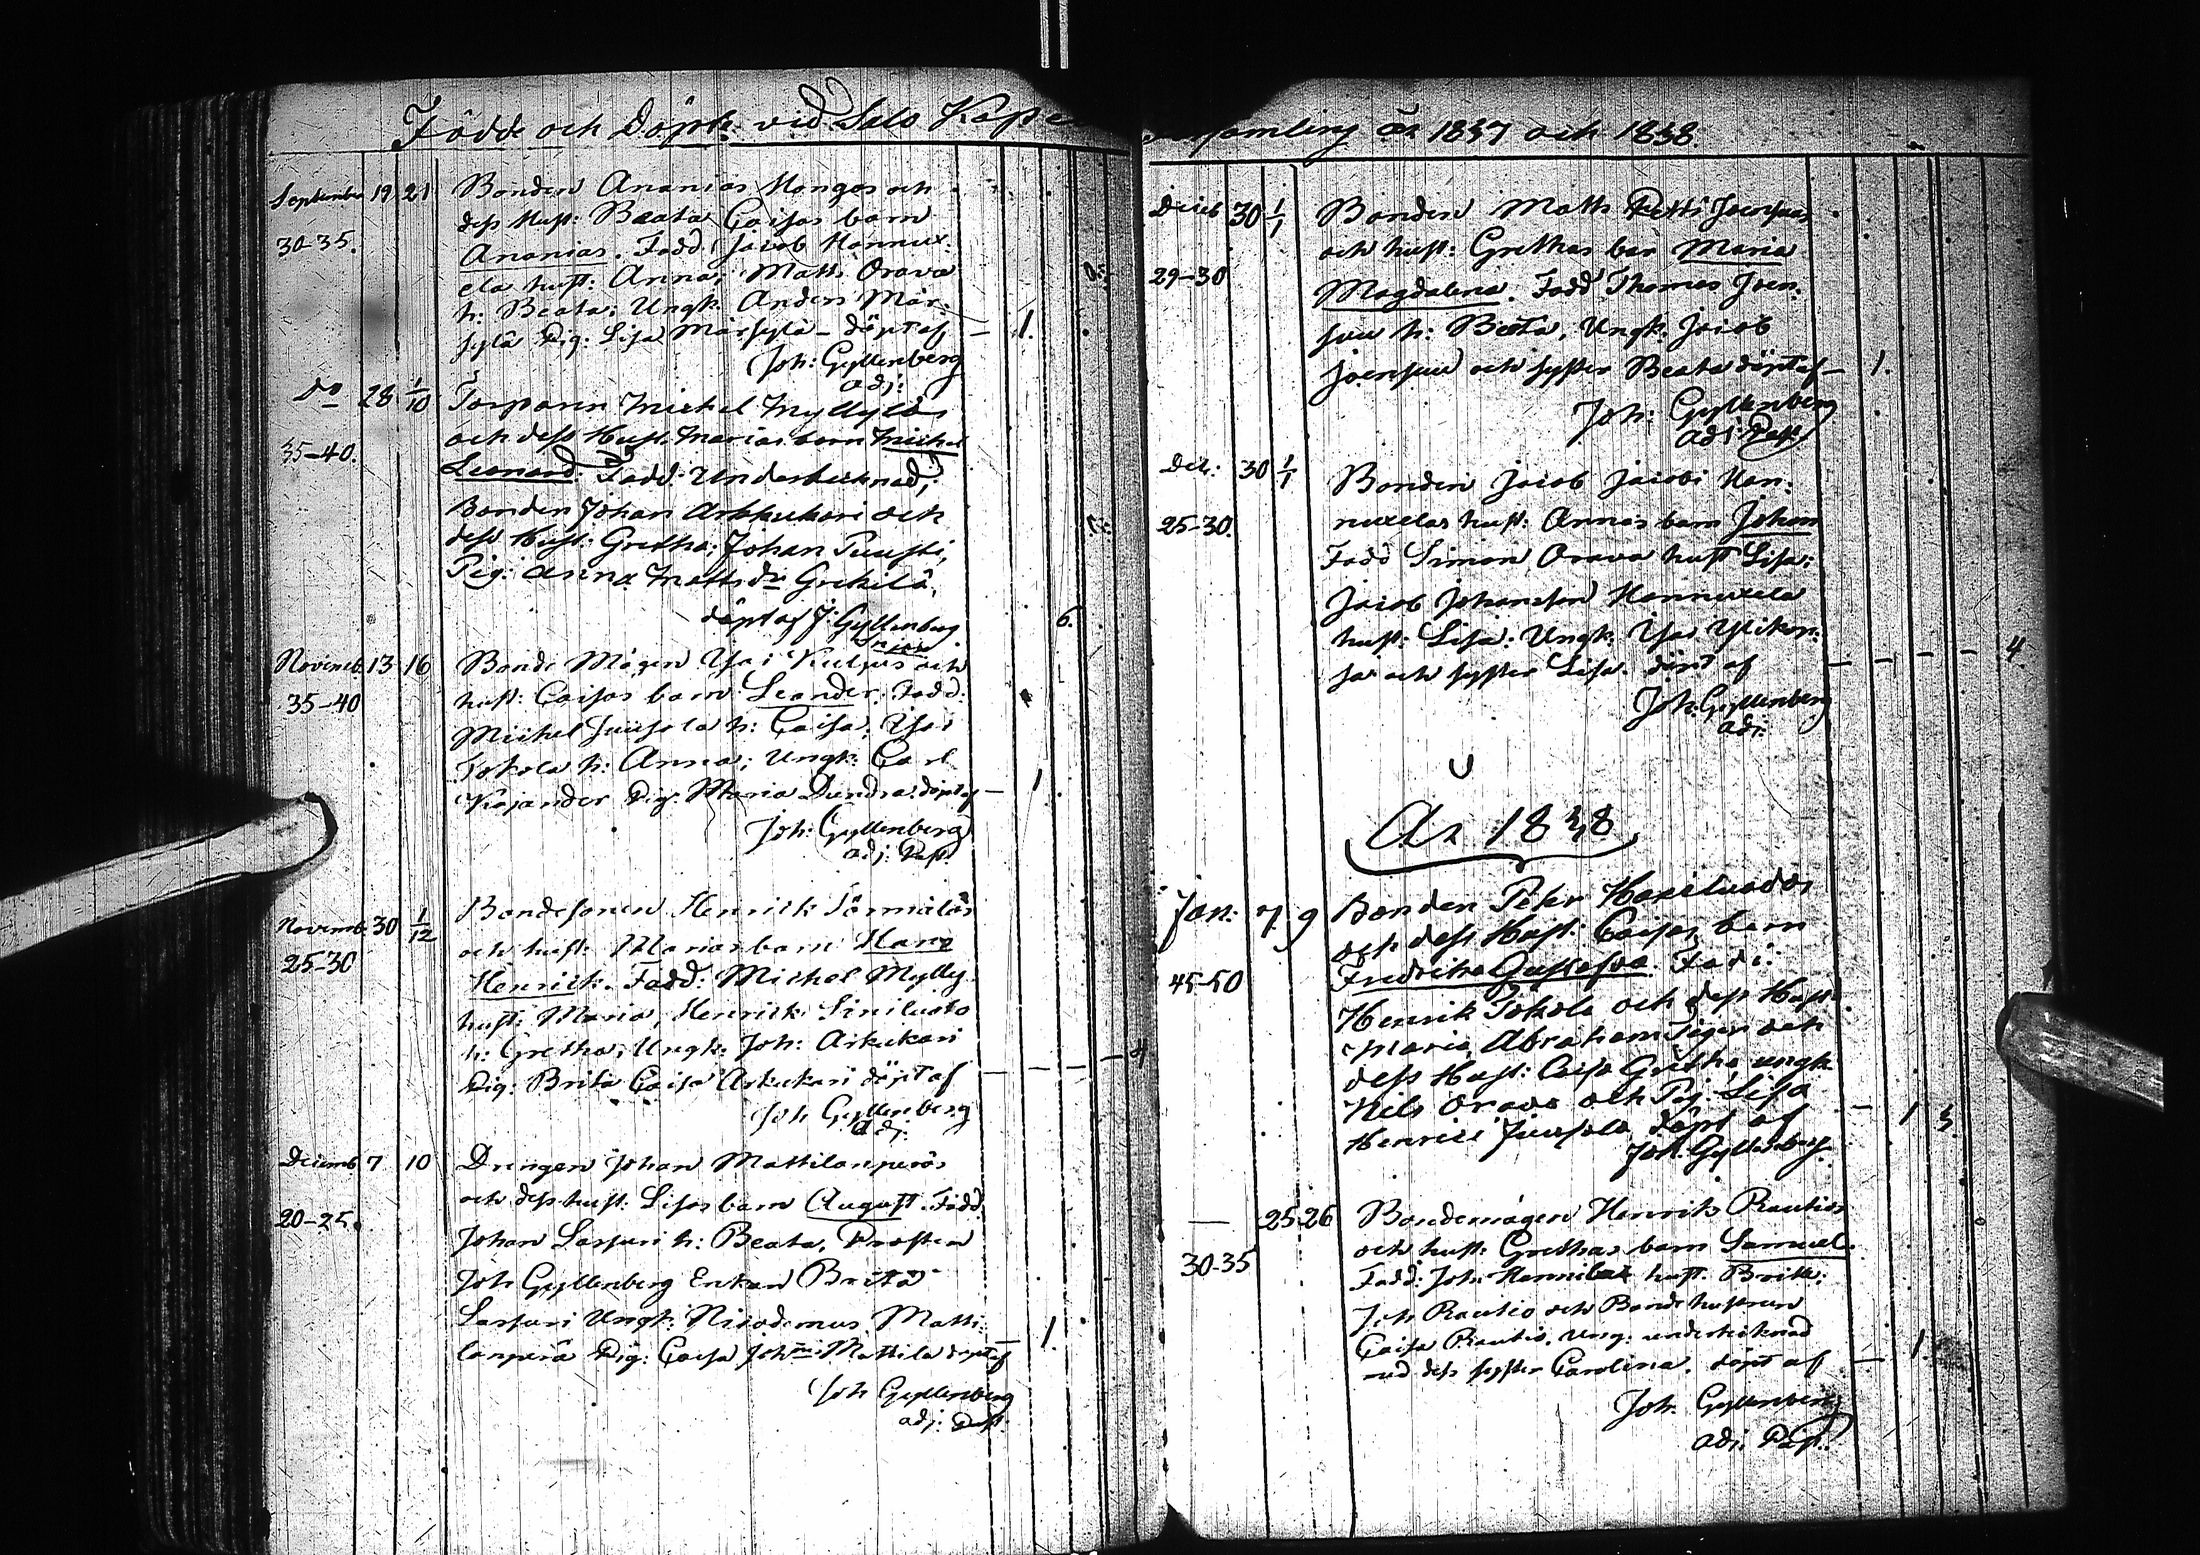 Födde och Döpte vid Salo Kapells Församling År 1837 och 1838.
September 19 21 Bonden Ananias Mongos och
30-35. dess Hust: Beata Caisas barn
Ananias. Fadd. Jacob Hannux
ela hust: Anna; Matts Orava
h: Beata; Ungk. Anders Mär-
sylä Pig: Lisa Märsylä - döpt af — 1.
Joh: Gyllenberg
adj:
Do 28 1/10 Torparen Michel Myllyläs
35-40. och dess Hust. Marias barn Michel
Leonard. Fadd: Undertecknad;
Bonden Johan Arkkukari och
dess Hust: Gretha; Johan Puusti,
Pig: Anna Mattsdr Grekilä,
döpt af J: Gyllenberg 6.
Novemb. 13 16 Bonde Mågen Isac Kuljus och
35-40 hust: Caisas barn Leander. Fadd.
Michel Juusola h: Caisa, Isac
Tokola h: Anna; Ungk: Carl
Kajander Pig. Maria Dundra. döpt af — 1
Joh: Gyllenberg
adj: Past.
Novemb 30 1/12 Bondesonen Henrik Törmäläs
25-30 och hust: Marias barn Hans
Henrick. Fadd: Michel Mylly
hust: Maria, Henrick Siniluoto
h: Gretha; Ungk: Joh: Arkukari
Pig: Brita Caisa Arkukari döpt af — — — — 4
Joh Gyllenberg
Adj:
Decemb 7 10 Drengen Johan Mattilanperäs
20-25. och dess hust: Lisas barn August. Fadd
Johan Sassuri h: Beata, Prosten
Joh Gyllenberg Enkan Brita
Sassuri Ungk: Nicodemus Matti-
lanperä Pig: Caisa Joh: Mattila döpt af — 1.
Joh Gyllenberg
adj: Past.
Deceb 30 1/1 Bonden Matts Petti Joensuus
och hust: Grethas bar Maria
29-30 Magdalena. Fadd Thomas Joen-
suu h: Beata, Ungk: Jacob
Joensuu och syster Beata döpt af — 1.
Joh: Gyllenberg
adj: Past
Dec: 30 1/1 Bonden Jacob Jacobi Han-
25-30. nuxelas hust: Annas barn Johan
Fadd Simon Orava hust Lisa;
Jacob Johansson Hannuxela
hust: Lisa: Ungk. Isac Ylikor-
sa och syster Lisa. döpt af — — — — 4.
Joh: Gyllenberg
adj:
År 1838
Jan: 7. 9 Bonden Peter Haxeluodos
och dess Hust: Caisas barn
45-50 Fredrika Gustafva. Fad:
Henrik Tokola och dess Hust:
Maria, Abraham Tiger och
dess Hust: Caisa Gretha, ungk
Nils Orava och Pig. Lisa
Henrici Juusola döpt af — 1 3.
Joh. Gyllenberg.
— 25 26 Bondemågen Henrik Rautios
och hust: Grethas barn Samuel.
30-35 Fadd: Joh: Hannila hust. Brita;
Joh Rautio och Bonde hustrun
Caisa Rautio, Ung: undertecknad
med dess syster Carolina. döpt af — 1.
Joh. Gyllenberg
adj. Past.